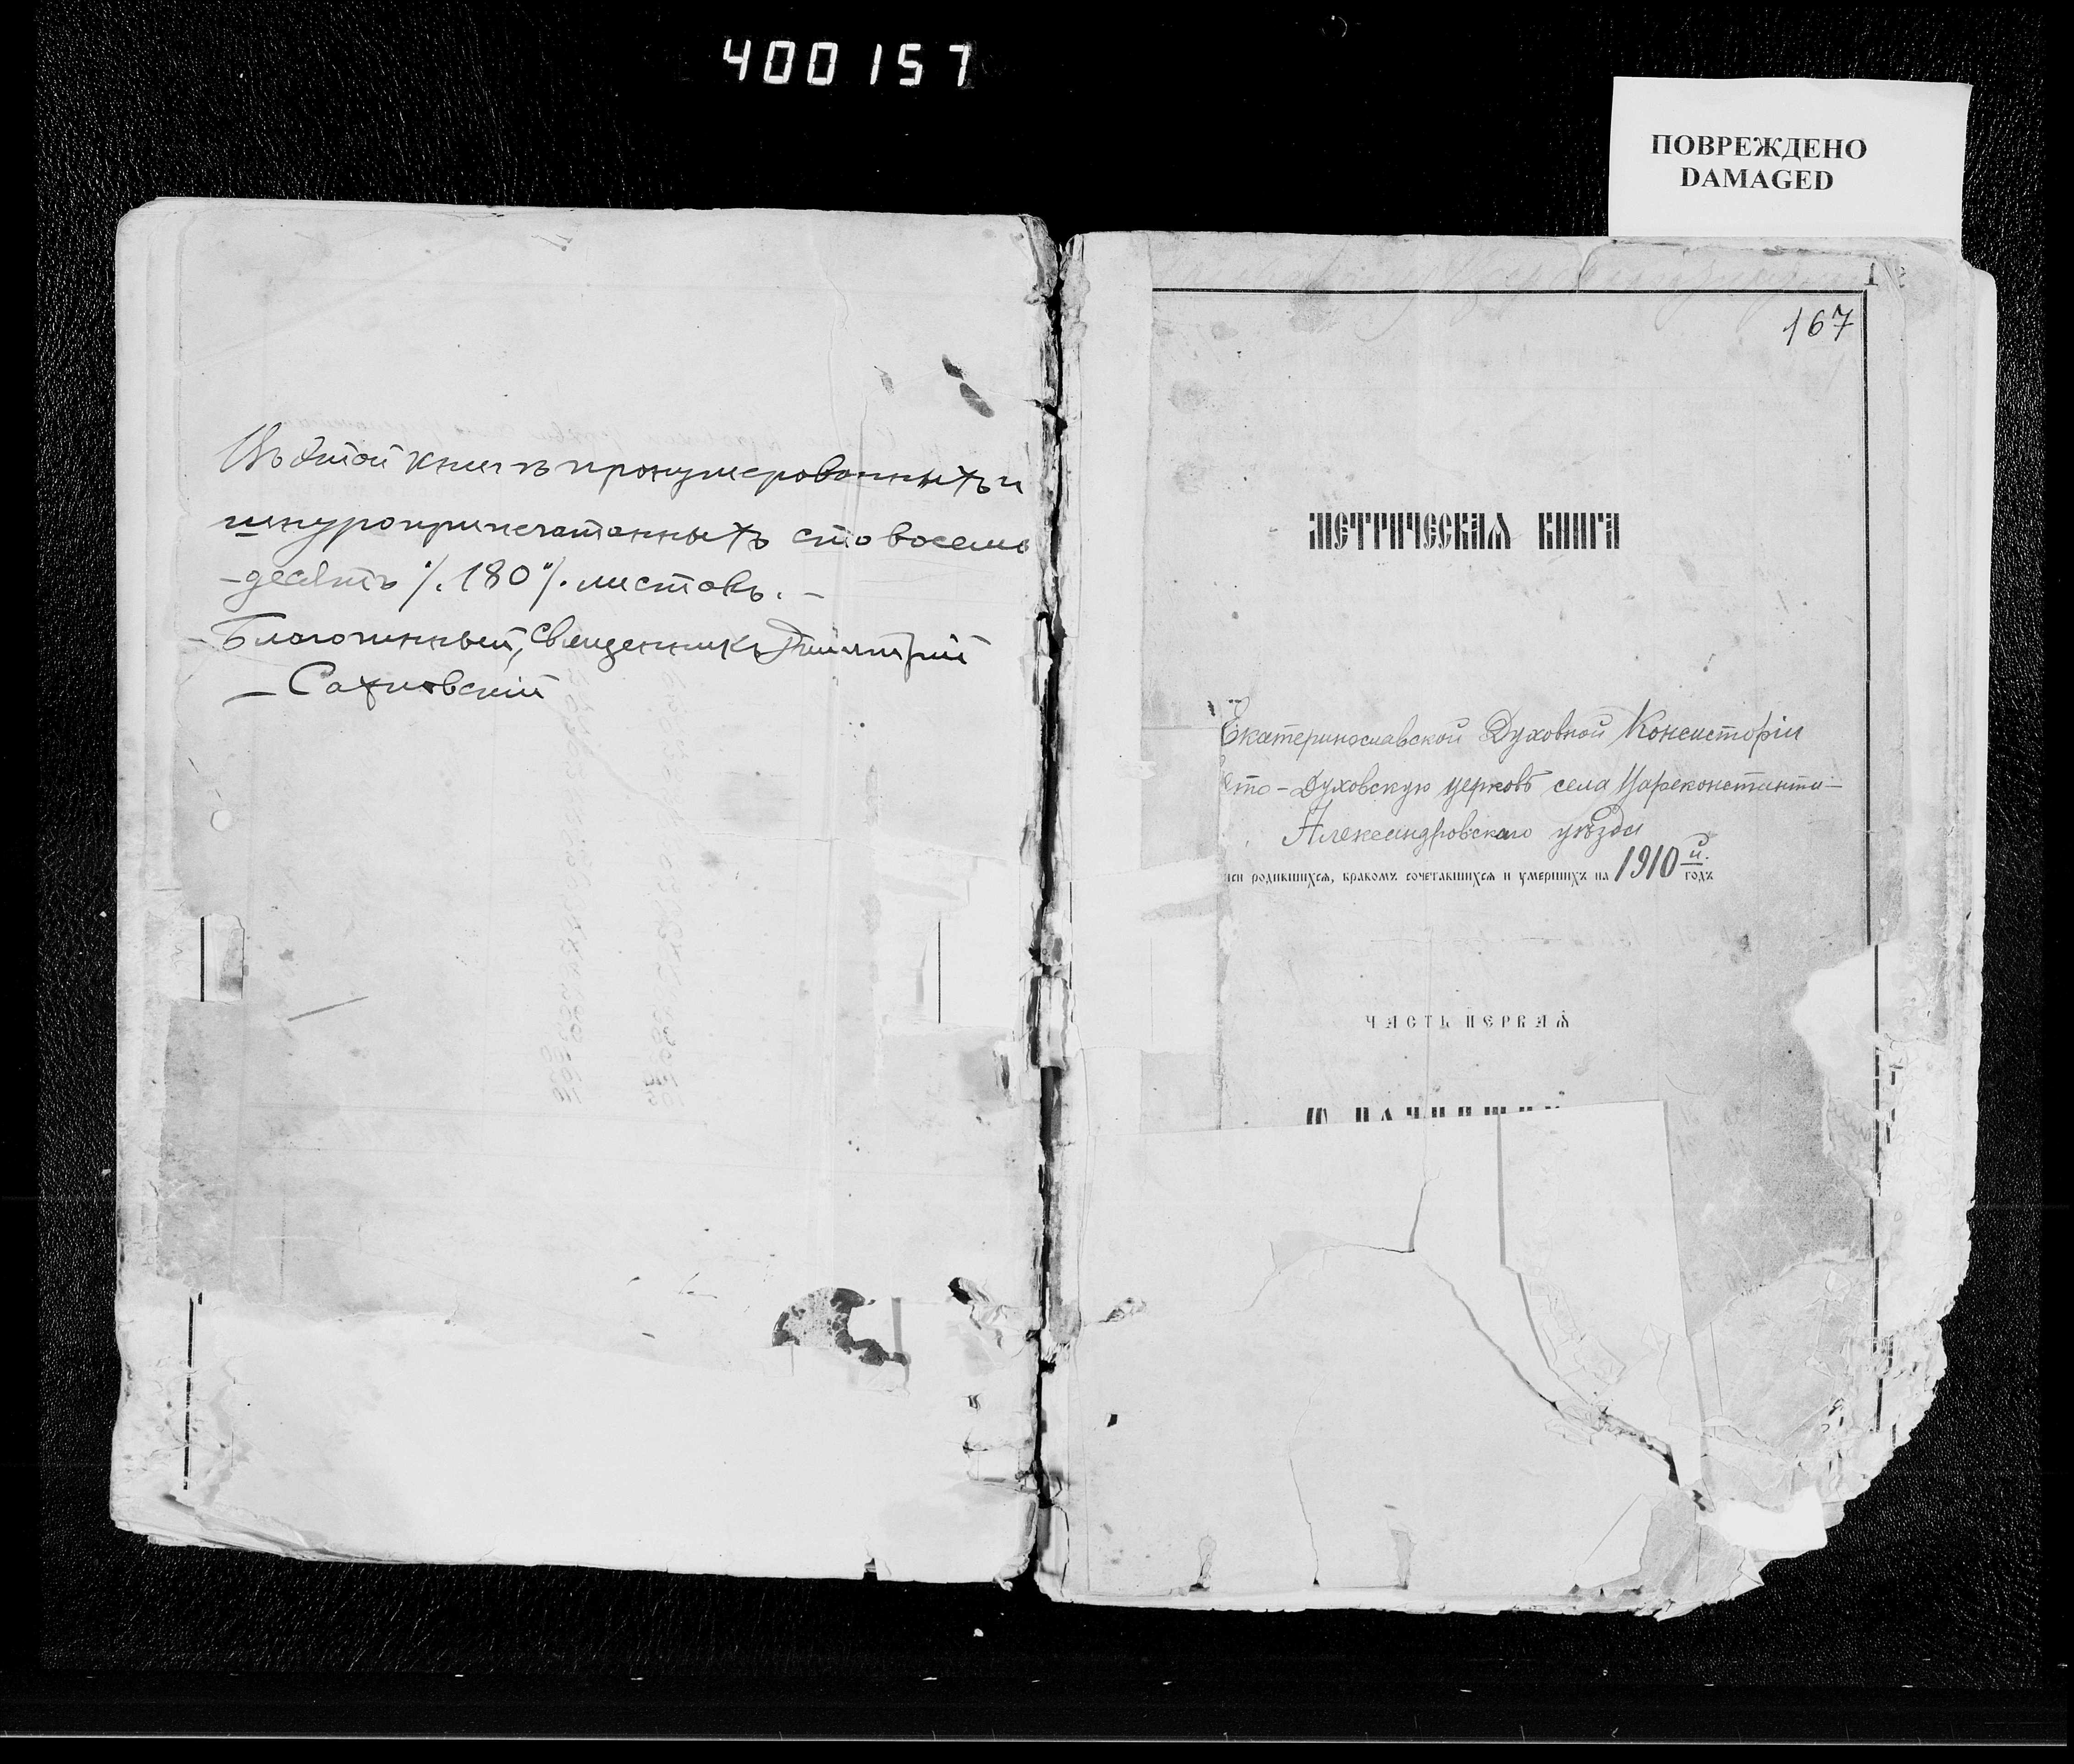 400157
ПОВРЕЖДЕНО
DAMAGED
Въ этой книгѣ пронумерованныхъ и
шнуроприпечатанныхъ сто восемь
-десятъ ./. 180 ./. листовъ. –
Благочинный, Священникъ Димитрій
– Сахновскій
167
МЕТРИЧЕСКАЯ КНИГА
Екатеринославской Духовной Консисторіи
то-Духовскую церковь села Цареконстанти-
Александровскаго уѣзда
родившихся, бракомъ сочетавшихся и умершихъ на 1910 й. годъ
ЧАСТЬ ПЕРВАЯ